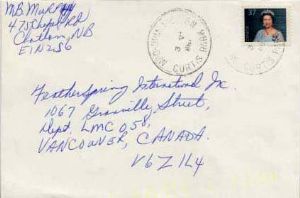 MB Murray
Chatham, NB
E1N2S6
37
CURTIS PARK
Featherspring International Inc.
1067 Granville Street,
Dept. LMC 058,
VANCOUVER, CANADA.
V6Z 1L4